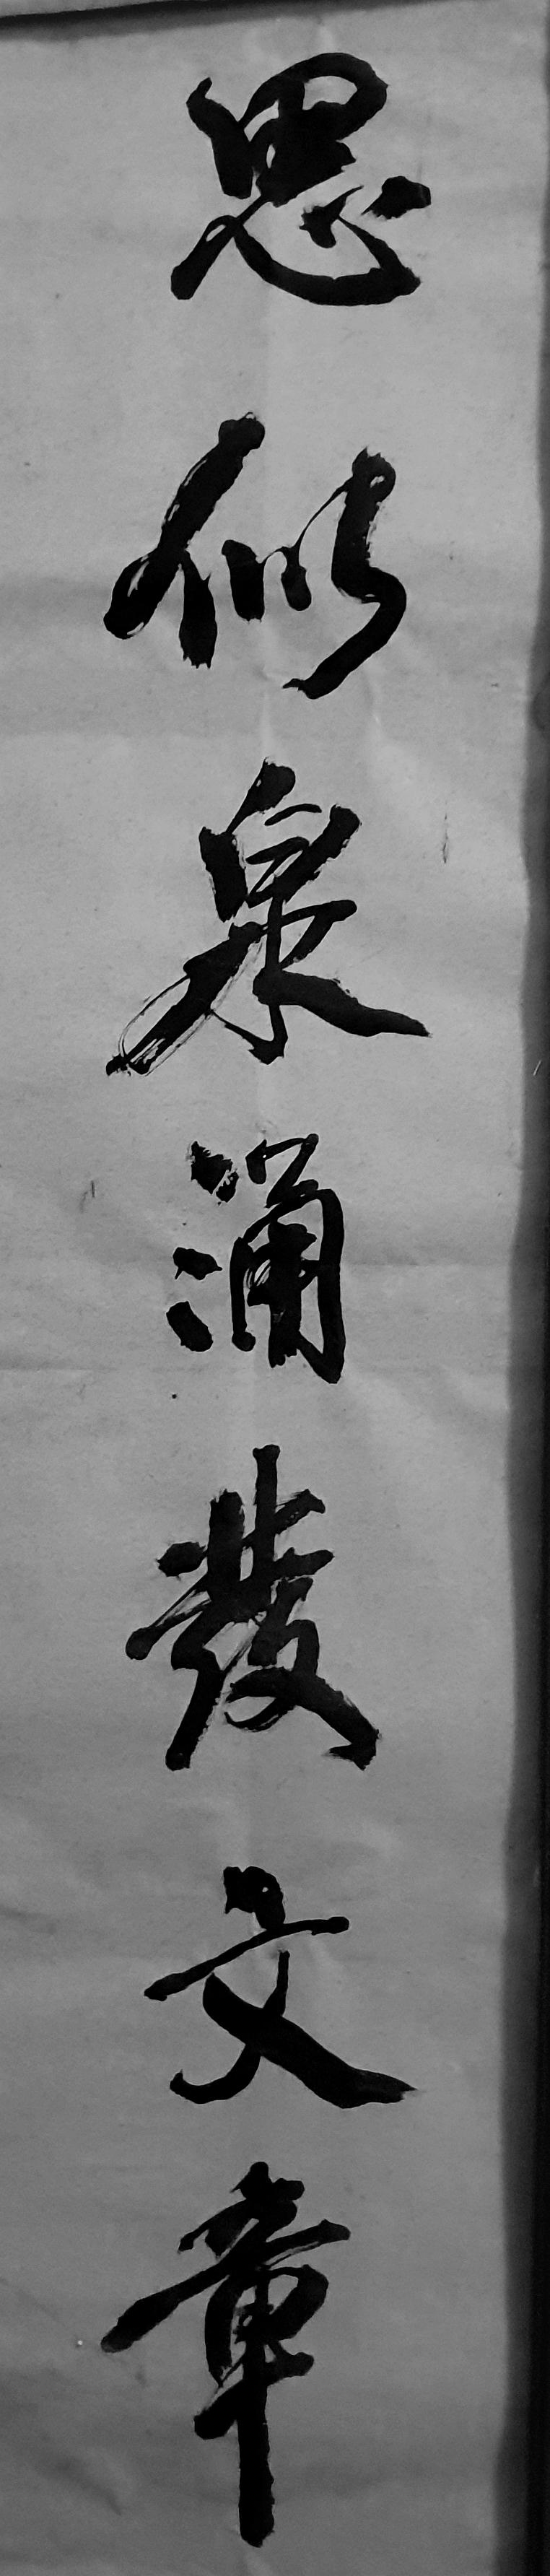 思似泉涌發文章